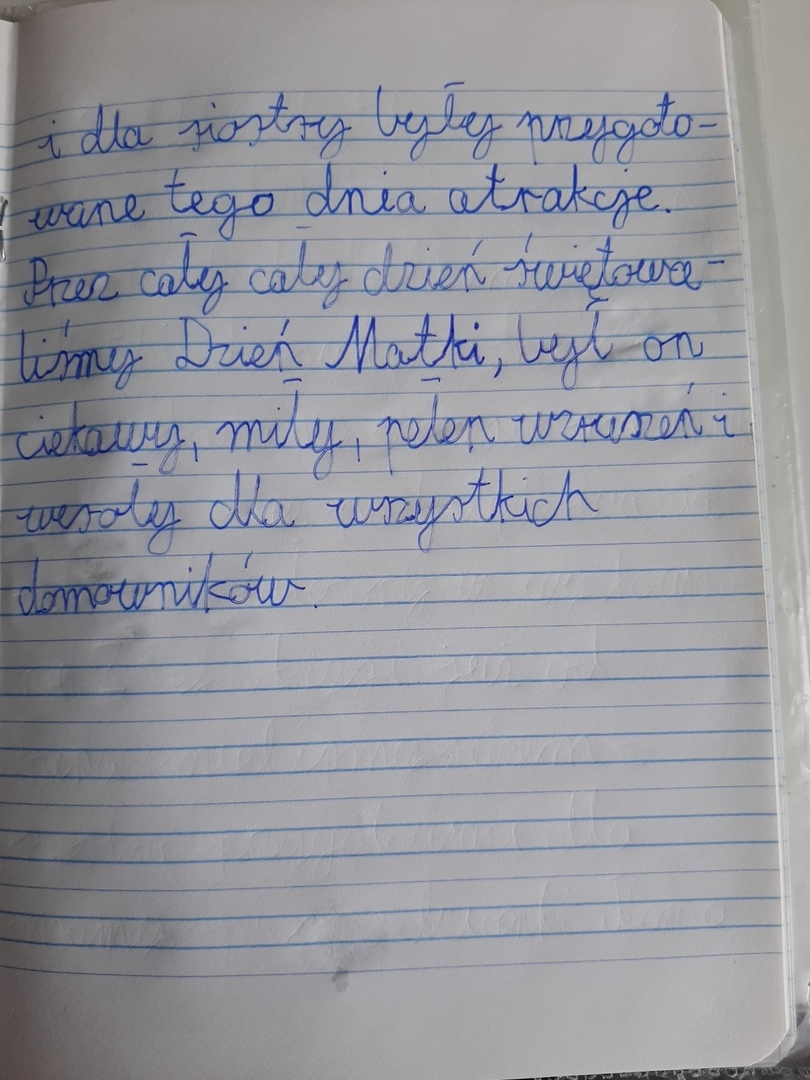 i dla siostry były przygoto-
wane tego dnia atrakcje.
Przez cały cały dzień świętowa-
liśmy Dzień Matki, był on
ciekawy, miły, pełen wzruszeń i
wesoły dla wszystkich
domowników.